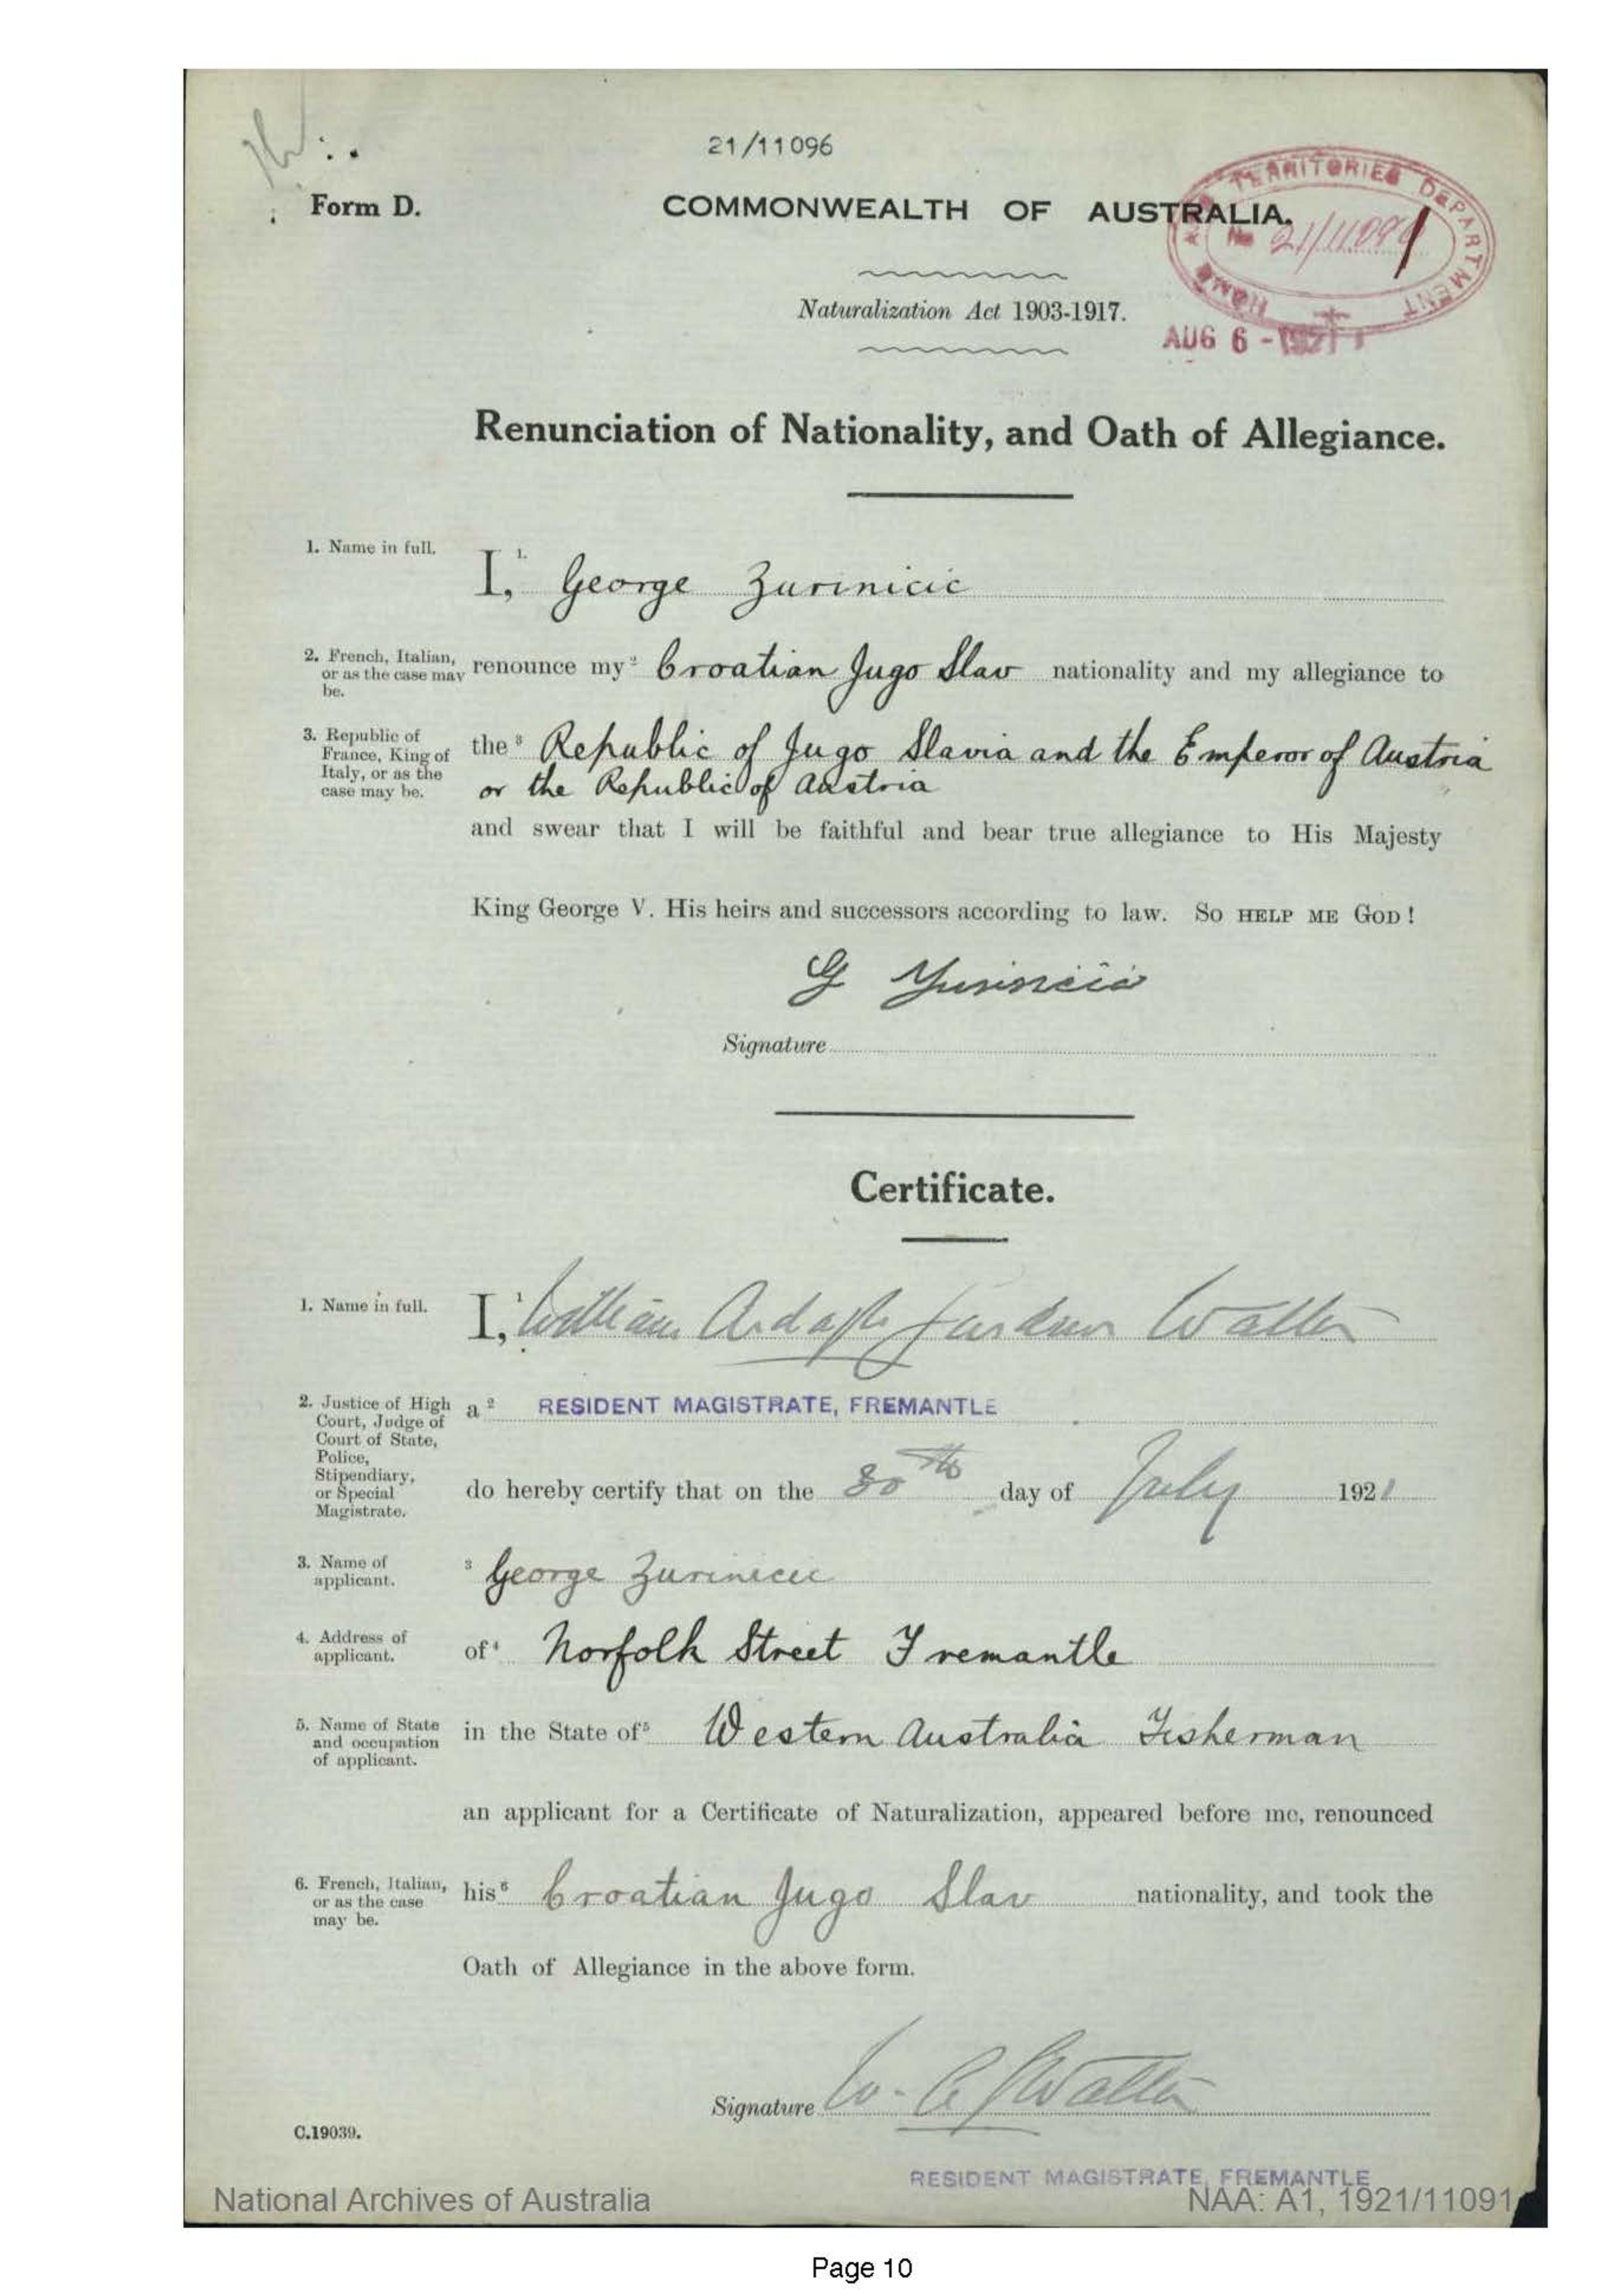 21/11096
Form D.
COMMONWEALTH OF AUSTRALIA.
HOME AND TERRITORIES DEPARTMENT
No 21/1109
AUG 6 - 1921
Naturalization Act 1903-1917.
Renunciation of Nationality, and Oath of Allegiance.
1. Name in full.
I, 1. George Zurinicic
2. French, Italian, or as the case may be.
renounce my 2 Croatian Jugo Slav nationality and my allegiance to
3. Republic of France, King of Italy, or as the case may be.
the 3 Republic of Jugo Slavia and the Emperor of Austria
or the Republic of Austria
and swear that I will be faithful and bear true allegiance to His Majesty
King George V. His heirs and successors according to law. SO HELP ME GOD!
G
Signature
Certificate.
1. Name in full.
I, 1 William Ardagh Walter
2. Justice of High Court, Judge of Court of State, Police, Stipendiary, or Special Magistrate.
a 2 RESIDENT MAGISTRATE, FREMANTLE
do hereby certify that on the 30th day of July 1921
3. Name of applicant.
3 George Zurinicic
4. Address of applicant.
of 4 Norfolk Street Fremantle
5. Name of State and occupation of applicant.
in the State of 5 Western Australia Fisherman
an applicant for a Certificate of Naturalization, appeared before me, renounced
6. French, Italian, or as the case may be.
his 6 Croatian Jugo Slav nationality, and took the
Oath of Allegiance in the above form.
Signature W. A G Walter
C.19039.
RESIDENT MAGISTRATE, FREMANTLE
National Archives of Australia
NAA: A1, 1921/11091
Page 10